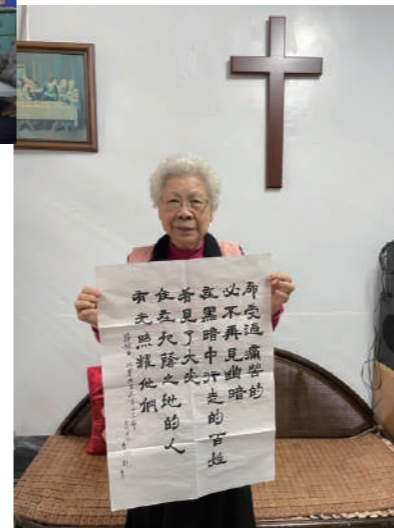 那受過痛苦的
必不再見幽暗
在黑暗中行走的百姓
看見了大光
住在死蔭之地的人
有光照耀他們